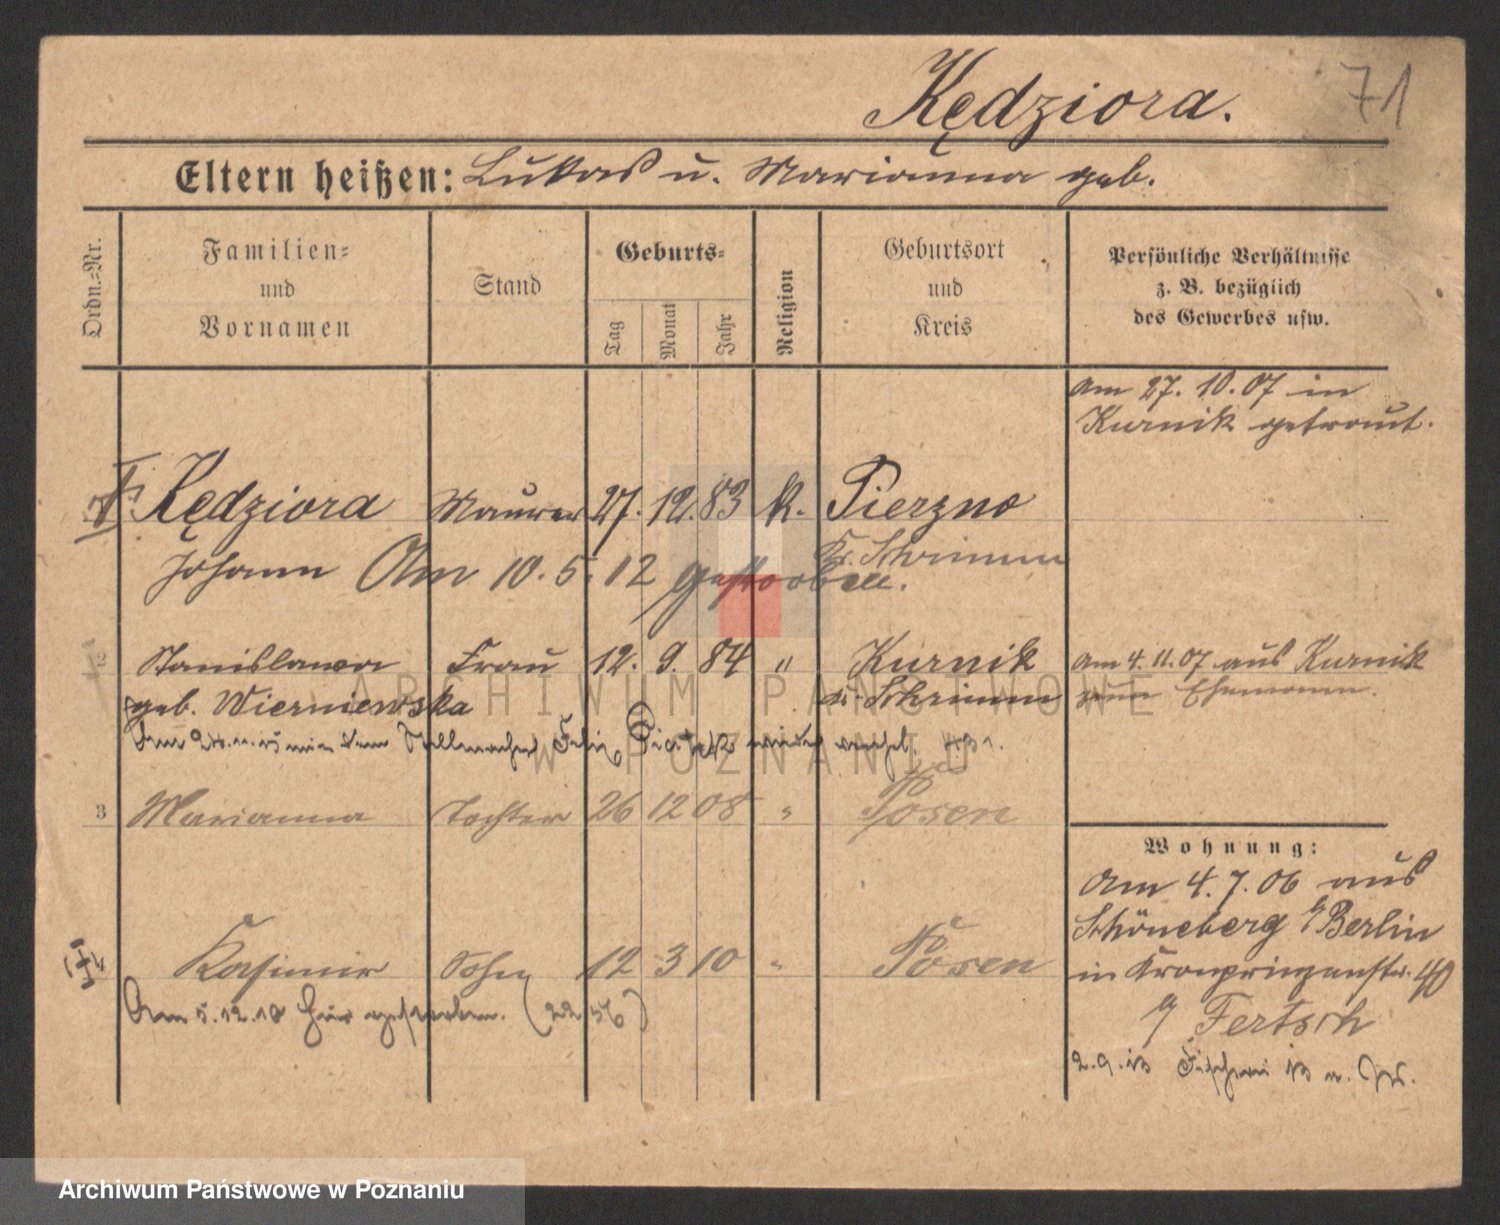 Kędziora. 71
Eltern heißen: Lukas u. Marianna geb.
Ordn.-Nr.
Familien-
und
Vornamen
Stand
Geburts-
Tag
Monat
Jahr
Religion
Geburtsort
und
Kreis
Persönliche Verhältnisse
z. B. bezüglich
des Gewerbes usw.
am 27. 10. 07 in
Kurnik getraut.
Kędziora Maurer 27. 12. 83 k. Pierzno
Kr. Schrimm
Johann Am 10. 5. 12 gestorben.
2 Stanislawa Frau 12. 9. 84 " Kurnik am 4. 11. 07 aus Kurnik
geb. Wierniewska Kr. Schrimm zum Ehemann.
Am mit dem Stellmacher Felix wieder
3 Marianna Tochter 26 12 08 " Posen
Wohnung:
Am 4. 7. 06 aus
Schöneberg b/Berlin
Kasimir Sohn 12 3 10 " Posen
in Kronprinzenstr. 40
Am 5. 12. 10 hier gestorben. (2256)
b/ Fertsch
2. 9. 13 Fischerei 13
ARCHIWUM PAŃSTWOWE
W POZNANIU
Archiwum Państwowe w Poznaniu